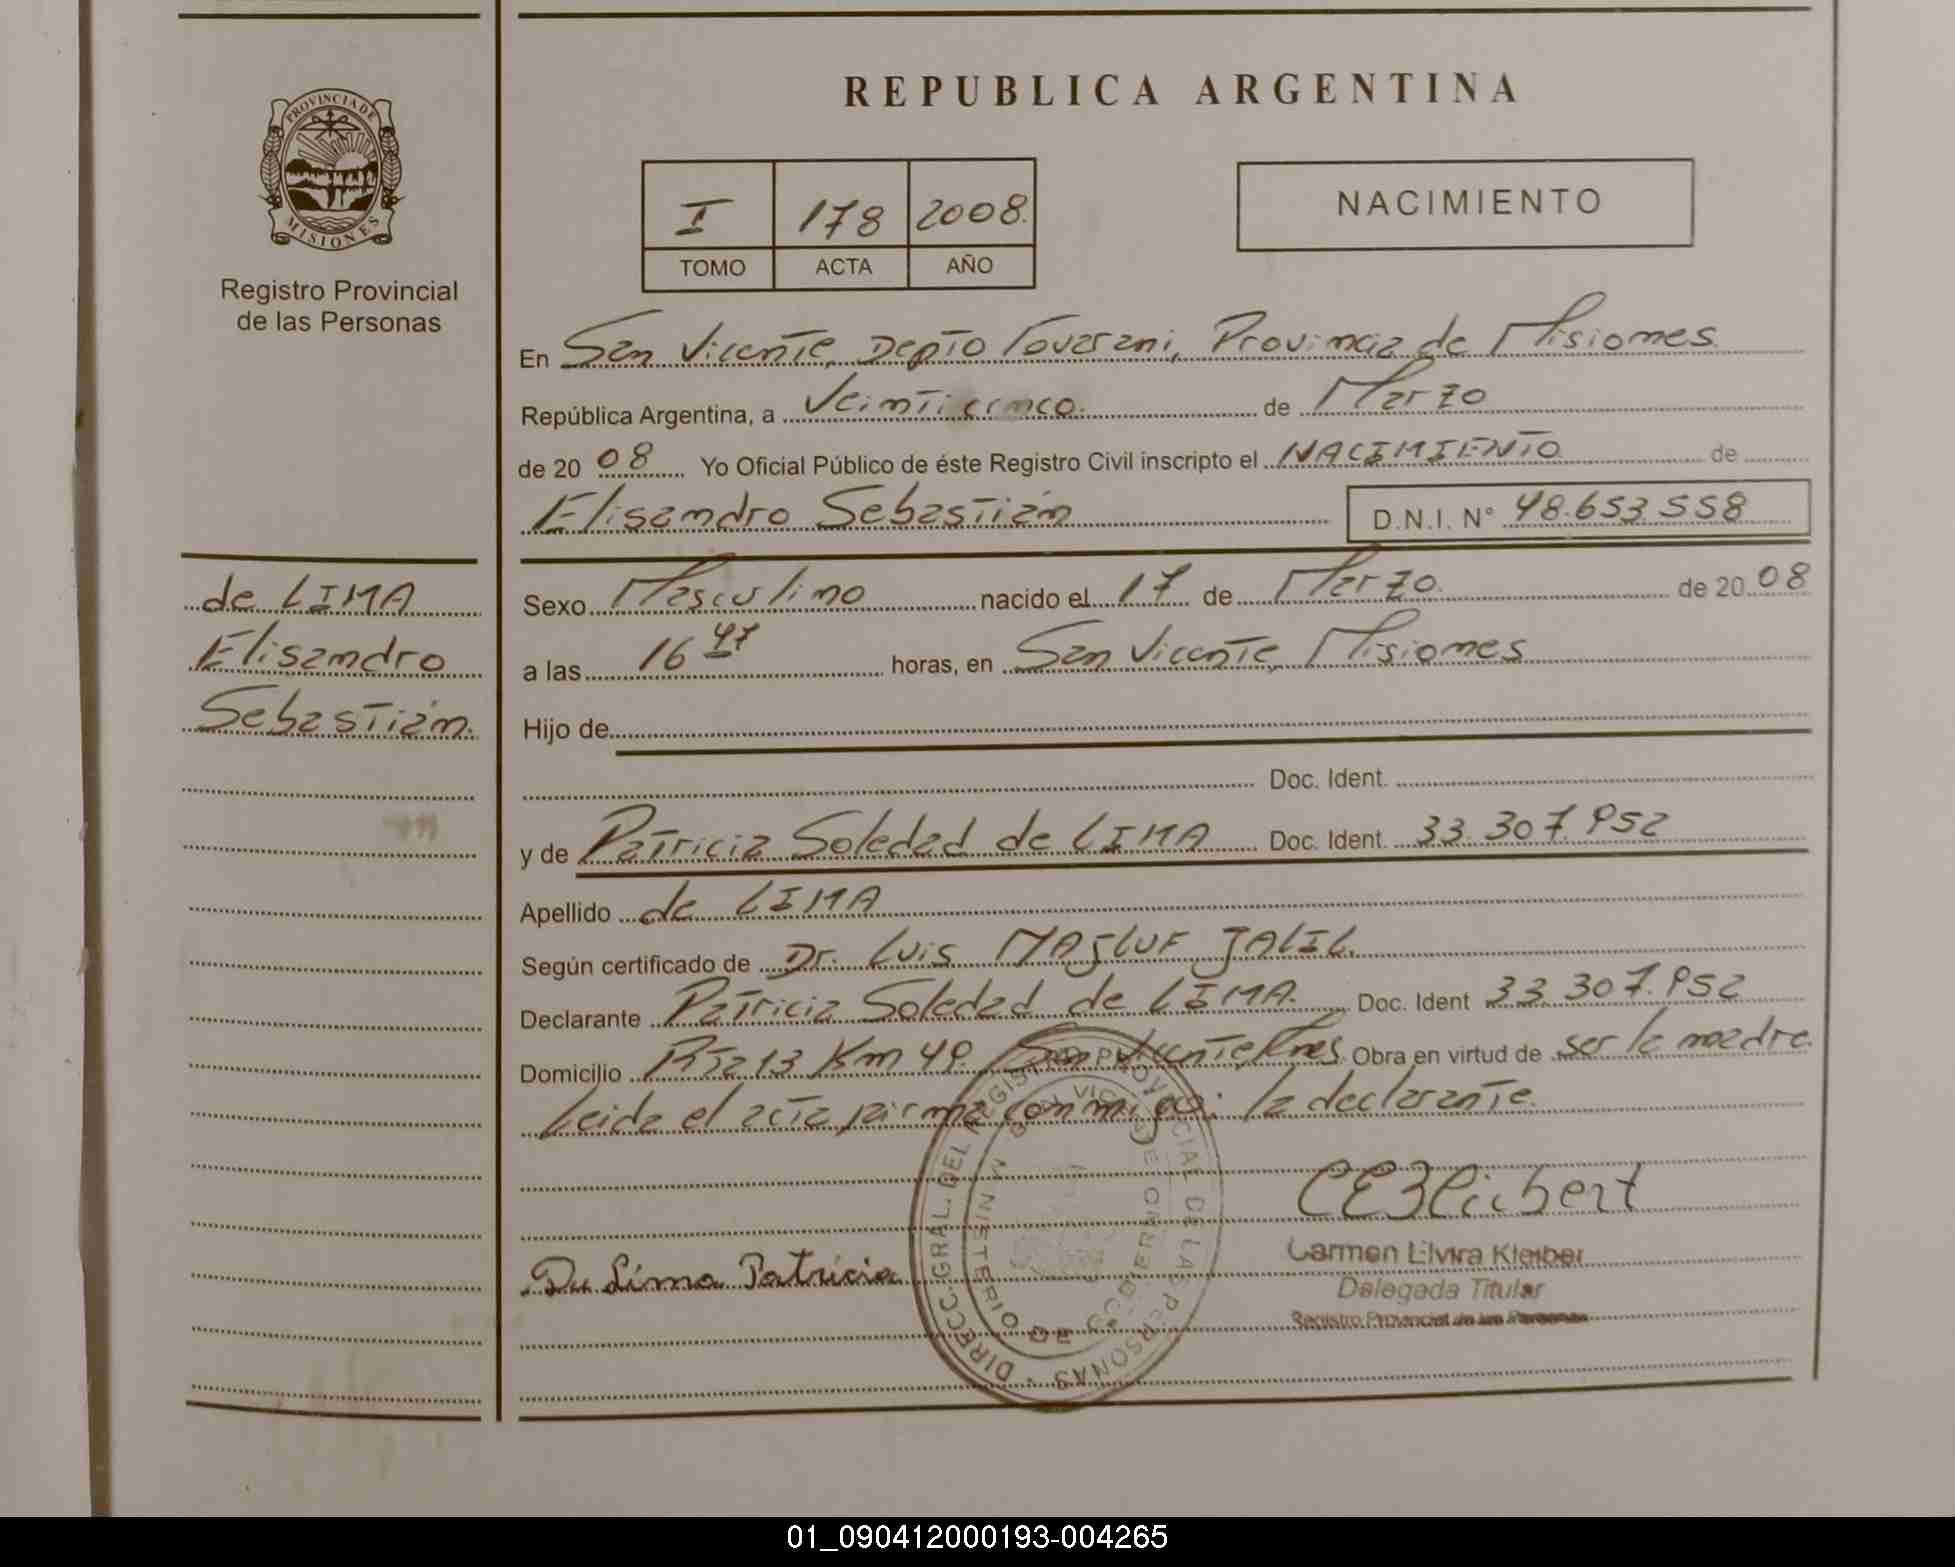 REPUBLICA ARGENTINA
PROVINCIA DE
MISIONES
Registro Provincial
de las Personas
I 178 2008.
TOMO ACTA AÑO
NACIMIENTO
En San Vicente, Depto Guarani, Provincia de Misiones.
República Argentina, a Veinticinco. de Marzo
de 20 08 Yo Oficial Público de éste Registro Civil inscripto el NACIMIENTO de
Elisandro Sebastián D.N.I. N° 48.653.558
de LIMA
Elisandro
Sebastián.
Sexo Masculino nacido el 17 de Marzo. de 20 08
a las 16 47 horas, en San Vicente, Misiones
Hijo de
Doc. Ident.
y de Patricia Soledad de LIMA Doc. Ident. 33.307.952
Apellido de LIMA
Según certificado de Dr. Luis MAJLUF JALIL.
Declarante Patricia Soledad de LIMA. Doc. Ident 33.307.952
Domicilio Rta 13 Km 49. San Vicente, Mnes. Obra en virtud de ser la madre.
Leida el acta firma conmigo: la declarante.
DIRECC. GRAL. DEL REGISTRO PROVINCIAL DE LAS PERSONAS
MINISTERIO DE GOBIERNO
SAN VICENTE
De Lima Patricia
CEKleibert
Carmen Elvira Kleiber
Delegada Titular
Registro Provincial de las Personas
01_090412000193-004265